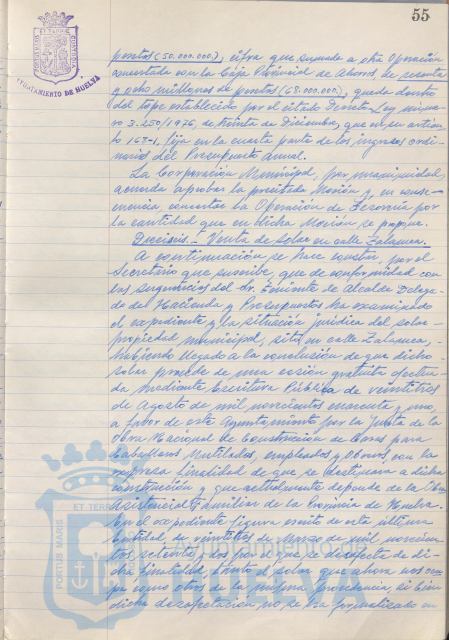 55
AYUNTAMIENTO DE HUELVA
pesetas (50.000.000), cifra que sumada a otra Operación
concertada con la Caja Provincial de Ahorros, de sesenta
y ocho millones de pesetas (68.000.000), queda dentro
del tope establecido por el citado Decreto Ley núme-
ro 3.250/1976, de treinta de Diciembre, que en su artícu-
lo 168-1, fija en la cuarta parte de los ingresos ordi-
narios del Presupuesto anual.
La Corporación Municipal, por unanimidad,
acuerda aprobar la precitada Moción y, en conse-
cuencia, concertar la Operación de Tesorería por
la cantidad que en dicha Moción se propone.
Venta de solar en calle Zalamea.
A continuación se hace constar, por el
Secretario que suscribe, que de conformidad con
las sugerencias del Sr. Teniente de Alcalde Delega-
do de Hacienda y Presupuestos ha examinado
el expediente y la situación jurídica del solar-
propiedad municipal, sito en calle Zalamea,-
habiendo llegado a la conclusión de que dicho-
solar procede de una cesión gratuita efectua-
da mediante Escritura Pública de veintitres
de Agosto de mil novecientos cuarenta y uno,
a favor de este Ayuntamiento por la Junta de la
Obra Nacional de Construcción de Casas para
Caballeros Mutilados, empleados y Obreros con la
expresa finalidad de que se destinara a dicha
construcción y que actualmente depende de la Obra
Asistencial Familiar de la Provincia de Huelva.
En el expediente figura escrito de esta última
Entidad de veintitres de Marzo de mil novecien-
tos setenta y dos por el que se desafecta de di-
cha finalidad, tanto el solar que ahora nos ocu-
pa como otros de la misma procedencia, si bien
dicha desafectación no se ha formalizado en
PORTUS MARIS
ET TERRAE
Ayuntamiento de
HUELVA